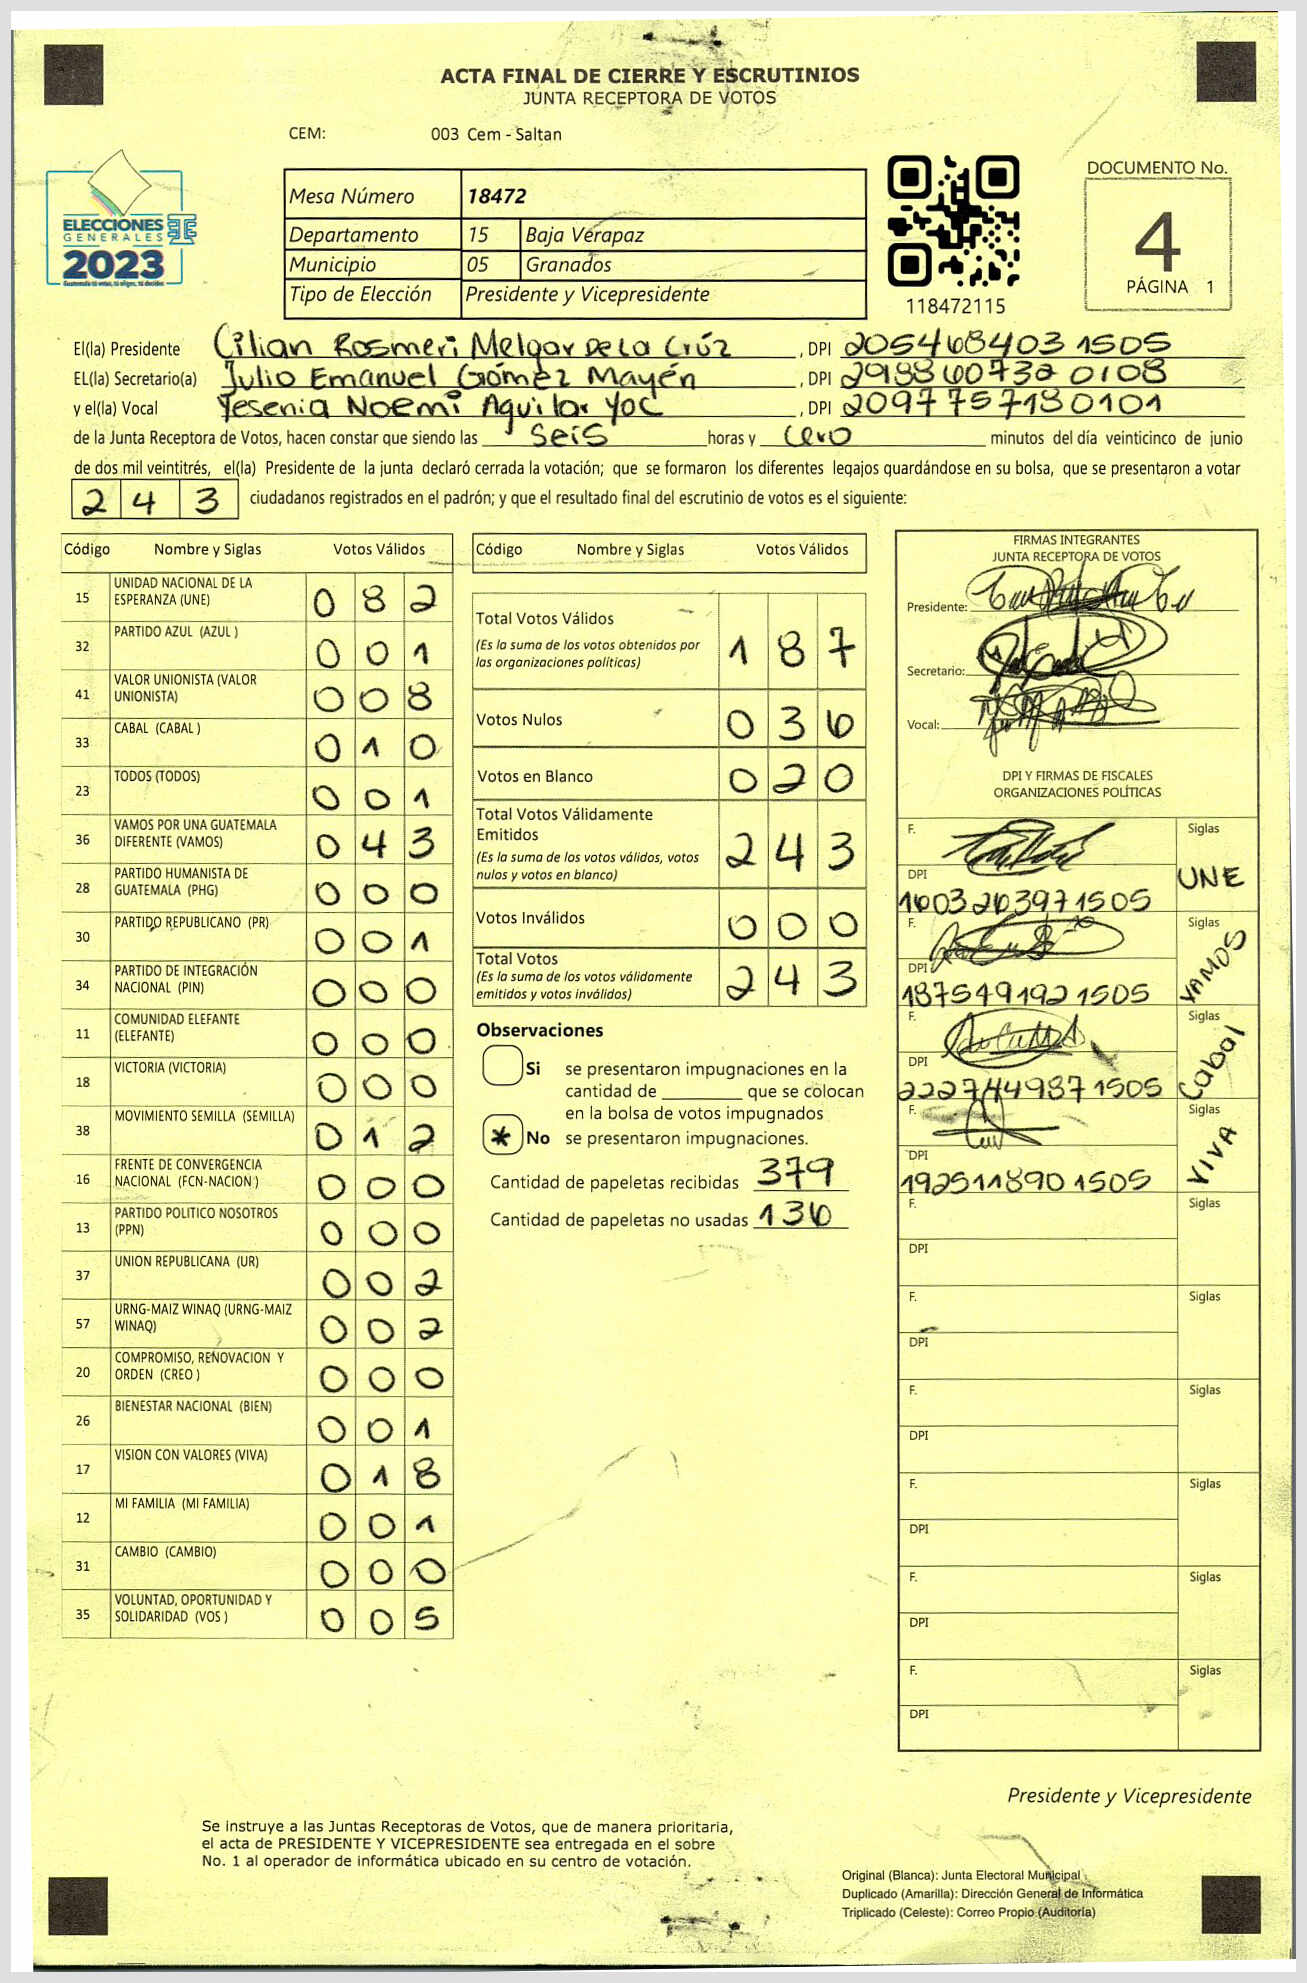 ACTA FINAL DE CIERRE Y ESCRUTINIOS
JUNTA RECEPTORA DE VOTOS
CEM: 003 Cem - Saltan
ELECCIONES
GENERALES
2023
Mesa Número 18472
Departamento 15 Baja Verapaz
Municipio 05 Granados
Tipo de Elección Presidente y Vicepresidente
118472115
DOCUMENTO No.
4
PÁGINA 1
El(la) Presidente Cilian Rosmeri Melgar De La Crúz , DPI 2054684031505
EL(la) Secretario(a) Julio Emanuel Gómez Mayén , DPI 2988607320108
y el(la) Vocal Yesenia Noemi Aguilar Yoc , DPI 2097757180101
de la Junta Receptora de Votos, hacen constar que siendo las seis horas y cero minutos del día veinticinco de junio
de dos mil veintitrés, el(la) Presidente de la junta declaró cerrada la votación; que se formaron los diferentes legajos guardándose en su bolsa, que se presentaron a votar
243 ciudadanos registrados en el padrón; y que el resultado final del escrutinio de votos es el siguiente:
Código Nombre y Siglas Votos Válidos
15 UNIDAD NACIONAL DE LA ESPERANZA (UNE) 082
32 PARTIDO AZUL (AZUL ) 001
41 VALOR UNIONISTA (VALOR UNIONISTA) 008
33 CABAL (CABAL ) 010
23 TODOS (TODOS) 001
36 VAMOS POR UNA GUATEMALA DIFERENTE (VAMOS) 043
28 PARTIDO HUMANISTA DE GUATEMALA (PHG) 000
30 PARTIDO REPUBLICANO (PR) 001
34 PARTIDO DE INTEGRACIÓN NACIONAL (PIN) 000
11 COMUNIDAD ELEFANTE (ELEFANTE) 000
18 VICTORIA (VICTORIA) 000
38 MOVIMIENTO SEMILLA (SEMILLA) 012
16 FRENTE DE CONVERGENCIA NACIONAL (FCN-NACION ) 000
13 PARTIDO POLITICO NOSOTROS (PPN) 000
37 UNION REPUBLICANA (UR) 002
57 URNG-MAIZ WINAQ (URNG-MAIZ WINAQ) 002
20 COMPROMISO, RENOVACION Y ORDEN (CREO ) 000
26 BIENESTAR NACIONAL (BIEN) 001
17 VISION CON VALORES (VIVA) 018
12 MI FAMILIA (MI FAMILIA) 001
31 CAMBIO (CAMBIO) 000
35 VOLUNTAD, OPORTUNIDAD Y SOLIDARIDAD (VOS ) 005
Código Nombre y Siglas Votos Válidos
Total Votos Válidos 187
(Es la suma de los votos obtenidos por
las organizaciones políticas)
Votos Nulos 036
Votos en Blanco 020
Total Votos Válidamente
Emitidos 243
(Es la suma de los votos válidos, votos
nulos y votos en blanco)
Votos Inválidos 000
Total Votos 243
(Es la suma de los votos válidamente
emitidos y votos inválidos)
Observaciones
Si se presentaron impugnaciones en la
cantidad de ________ que se colocan
en la bolsa de votos impugnados
* No se presentaron impugnaciones.
Cantidad de papeletas recibidas 379
Cantidad de papeletas no usadas 136
FIRMAS INTEGRANTES
JUNTA RECEPTORA DE VOTOS
Presidente:
Secretario:
Vocal:
DPI Y FIRMAS DE FISCALES
ORGANIZACIONES POLÍTICAS
F. Siglas
DPI UNE
1603263971505
F. Siglas
DPI VAMOS
1875491921505
F. Siglas
DPI Cabal
2227449871505
F. Siglas
DPI VIVA
1925118901505
F. Siglas
DPI
F. Siglas
DPI
F. Siglas
DPI
F. Siglas
DPI
F. Siglas
DPI
F. Siglas
DPI
Presidente y Vicepresidente
Se instruye a las Juntas Receptoras de Votos, que de manera prioritaria,
el acta de PRESIDENTE Y VICEPRESIDENTE sea entregada en el sobre
No. 1 al operador de informática ubicado en su centro de votación.
Original (Blanca): Junta Electoral Municipal
Duplicado (Amarilla): Dirección General de Informática
Triplicado (Celeste): Correo Propio (Auditoría)